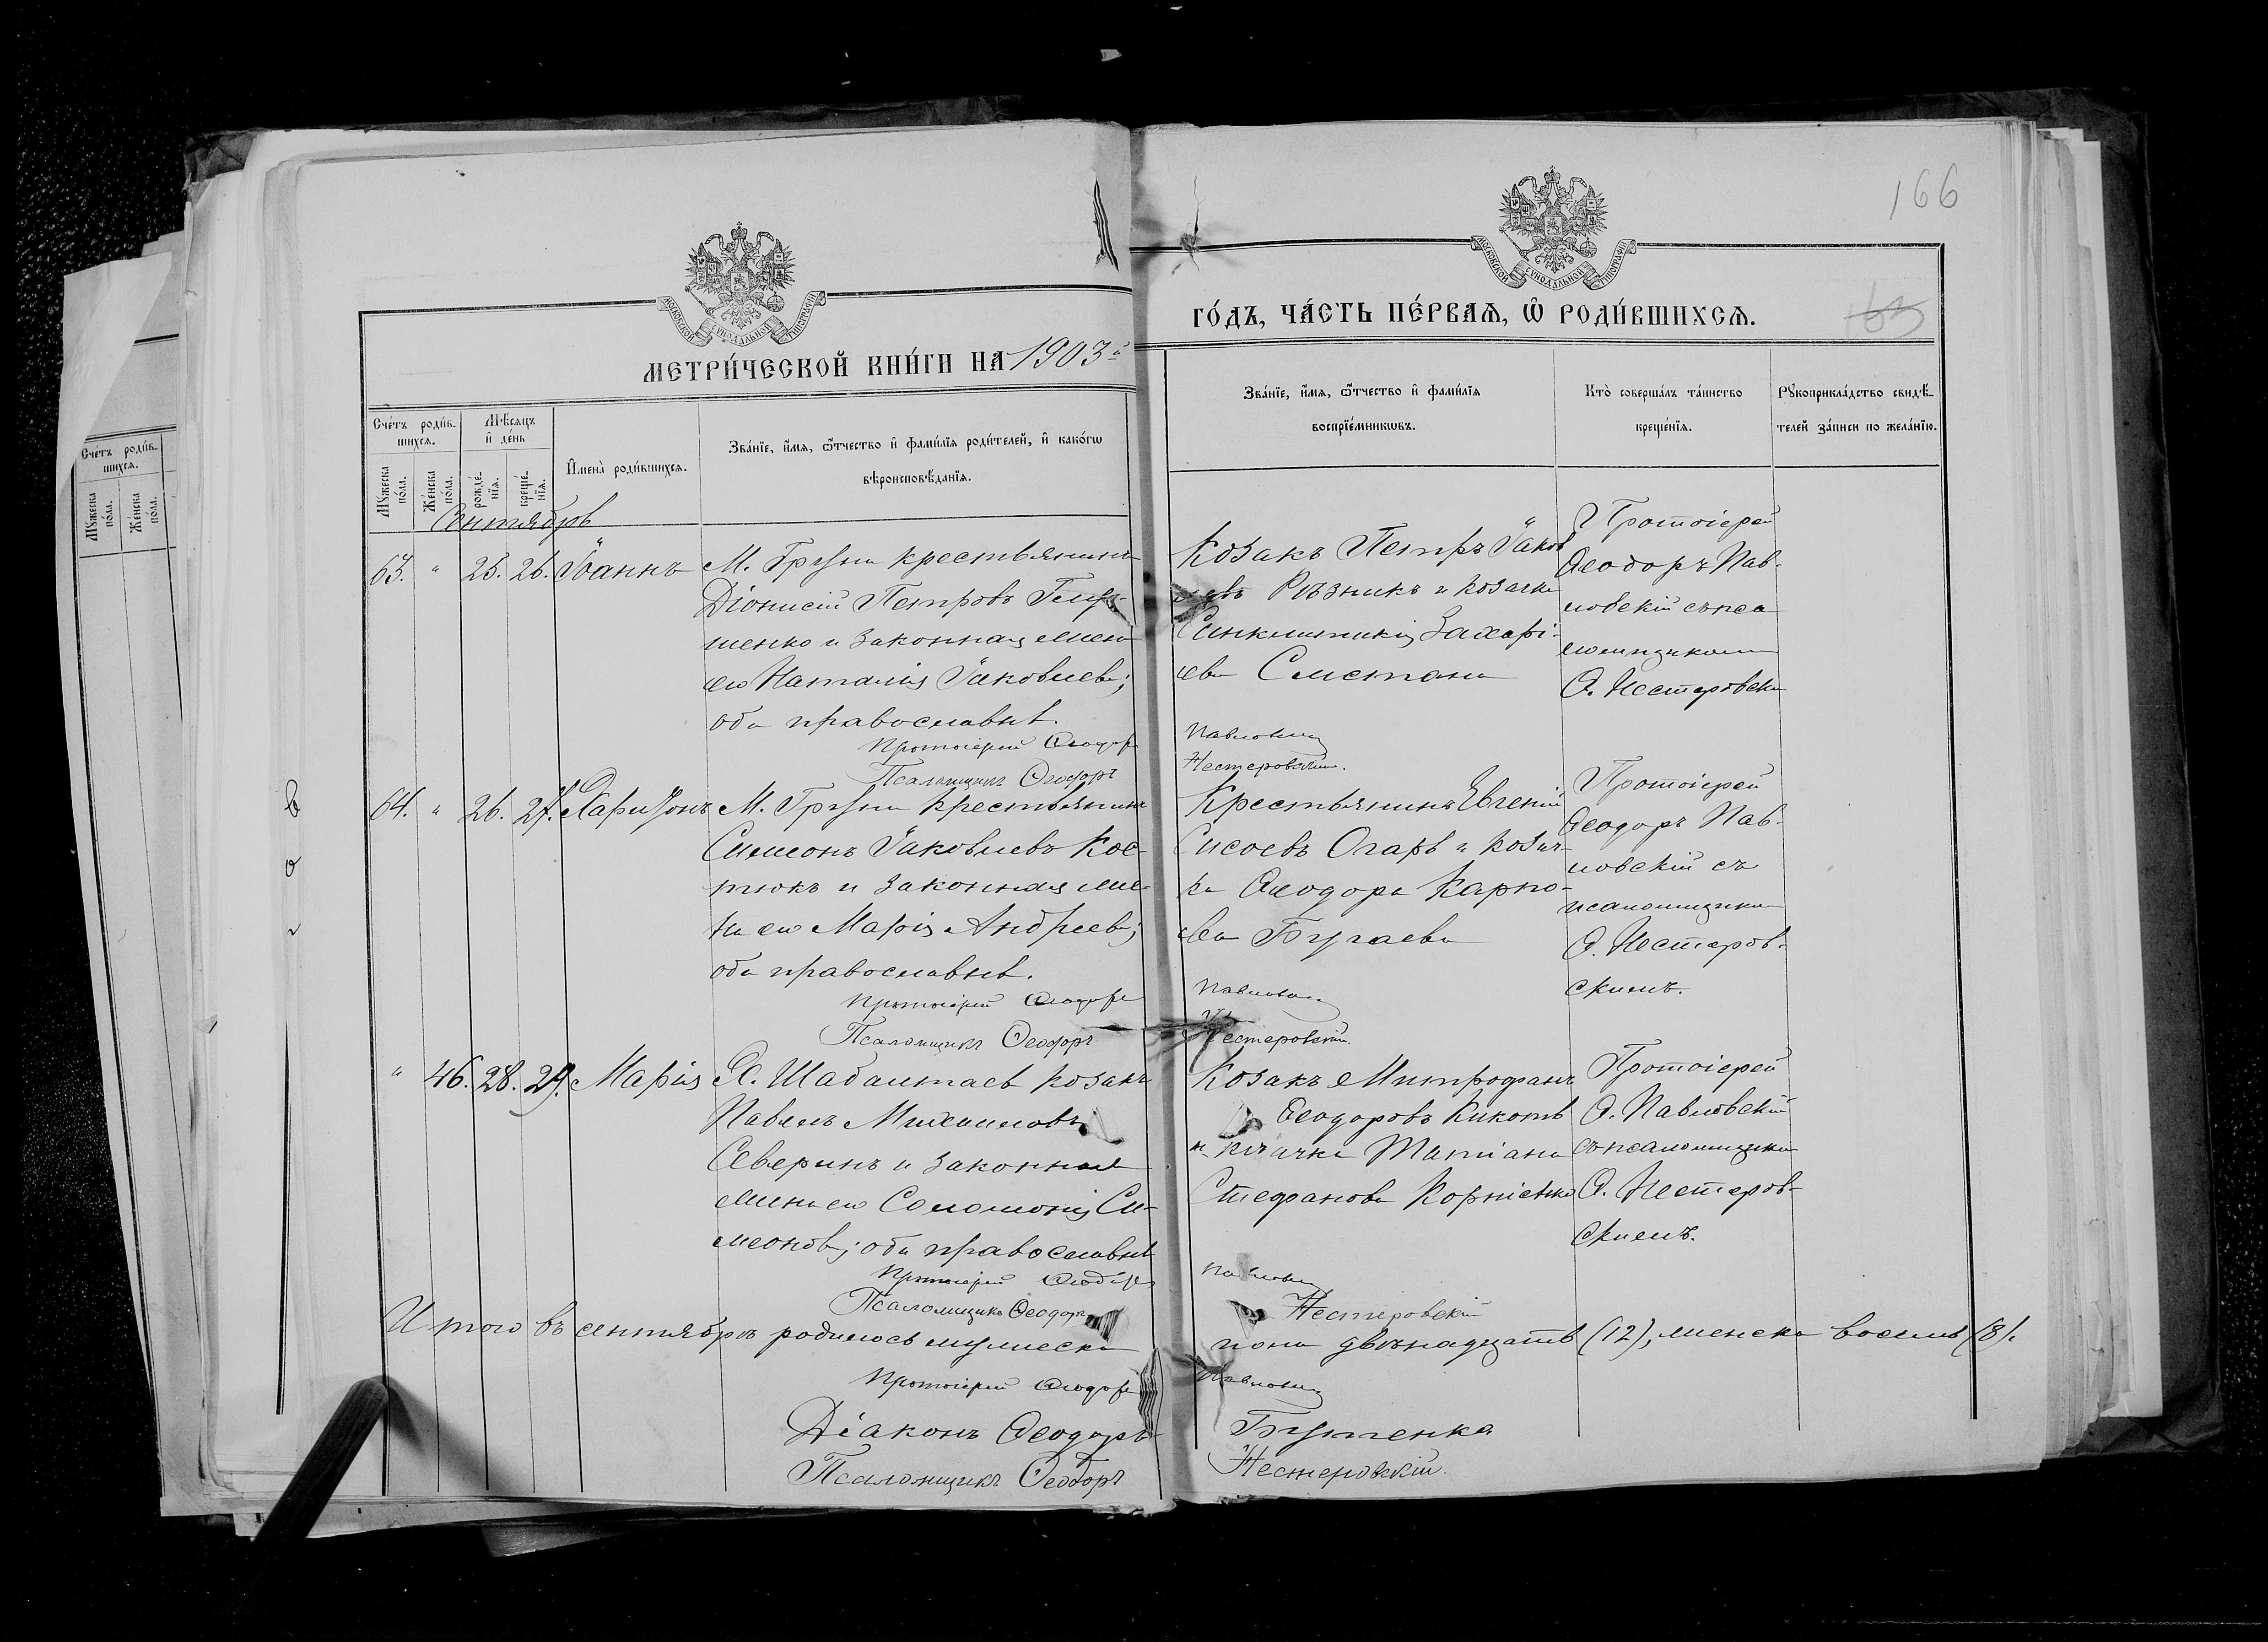 166
МОСКОВСКОЙ СѴНОДАЛЬНОЙ ТИПОГРАФІИ
МОСКОВСКОЙ СѴНОДАЛЬНОЙ ТИПОГРАФІИ
МЕТРИ́ЧЕСКОЙ КНИ́ГИ НА 1903й
ГО́ДЪ, ЧА́СТЬ ПЕ́РВАѦ, Ѽ РОДИ́ВШИХСѦ.
163
Сче́тъ роди́в-
шихсѧ.
Мꙋ́жеска по́ла.
Же́нска по́ла.
Сче́тъ роди́в-
шихсѧ.
Мꙋ́жеска по́ла.
Же́нска по́ла.
Мѣ́сѧцъ
и҆ де́нь
рожде́-
нїѧ.
креще́-
нїѧ.
И҆мена̀ роди́вшихсѧ.
Зва́нїе, и҆́мѧ, ѻ҆́тчество и҆ фамі́лїѧ роди́телей, и҆ како́гѡ
вѣроисповѣ́данїѧ.
Зва́нїе, и҆́мѧ, ѻ҆́тчество и҆ фамі́лїѧ
воспрїе́мникѡвъ.
Кто̀ соверша́лъ та́инство
креще́нїѧ.
Рꙋкоприкла́дство свидѣ́-
телей за́писи по жела́нїю.
Сентябрь
63. " 25. 26. Іоаннъ
М. Груни крестьянинъ
Діонисій Петровъ
шенко и законная жена
его Наталія Іаковлева;
оба православные.
Протоіерей Ѳеодоръ
Псаломщикъ Ѳеодоръ
Козакъ Петръ Іаков
левъ Рѣзникъ и козачка
Синклитикія Захарі-
ева Сметана
Павловскій
Нестеровскій.
Протоіерей
Ѳеодоръ Пав-
ловскій съ пса
ломщикомъ
Ѳ. Нестеровски
64. " 26. 27. Ларіонъ
М. Груни крестьянинъ
Симеонъ Іаковлевъ Кос-
тюкъ и законная же-
на его Марія Андреева;
оба православные.
Протоіерей Ѳеодоръ
Псаломщикъ Ѳеодоръ
Крестьянинъ Евгеній
Сисоевъ Огарь и козач-
ка Ѳеодора Карпо-
ва Бугаева
Павловскій
Нестеровскій.
Протоіерей
Ѳеодоръ Пав-
ловскій съ
псаломщикомъ
Ѳ. Нестеров-
скимъ.
" 46. 28. 29. Марія
Х. Шабалтаев козакъ
Павелъ Михаиловъ
Северинъ и законная
жена его Соломонія Си-
меонова; оба православные
Протоіерей Ѳеодоръ
Псаломщикъ Ѳеодоръ
Козакъ Митрофанъ
Ѳеодоровъ Кикоть
и козачка Татіана
Стефанова Корніенко
Павловскій
Нестеровскій
Протоіерей
Ѳ. Павловскій
съ псаломщикомъ
Ѳ. Нестеров-
скимъ.
Итого въ сентябрѣ родилось мужеска пола двѣнадцать (12), женска восемь (8).
Протоіерей Ѳеодоръ Павловскій
Діаконъ Ѳеодоръ
Псаломщикъ Ѳеодоръ Нестеровскій.